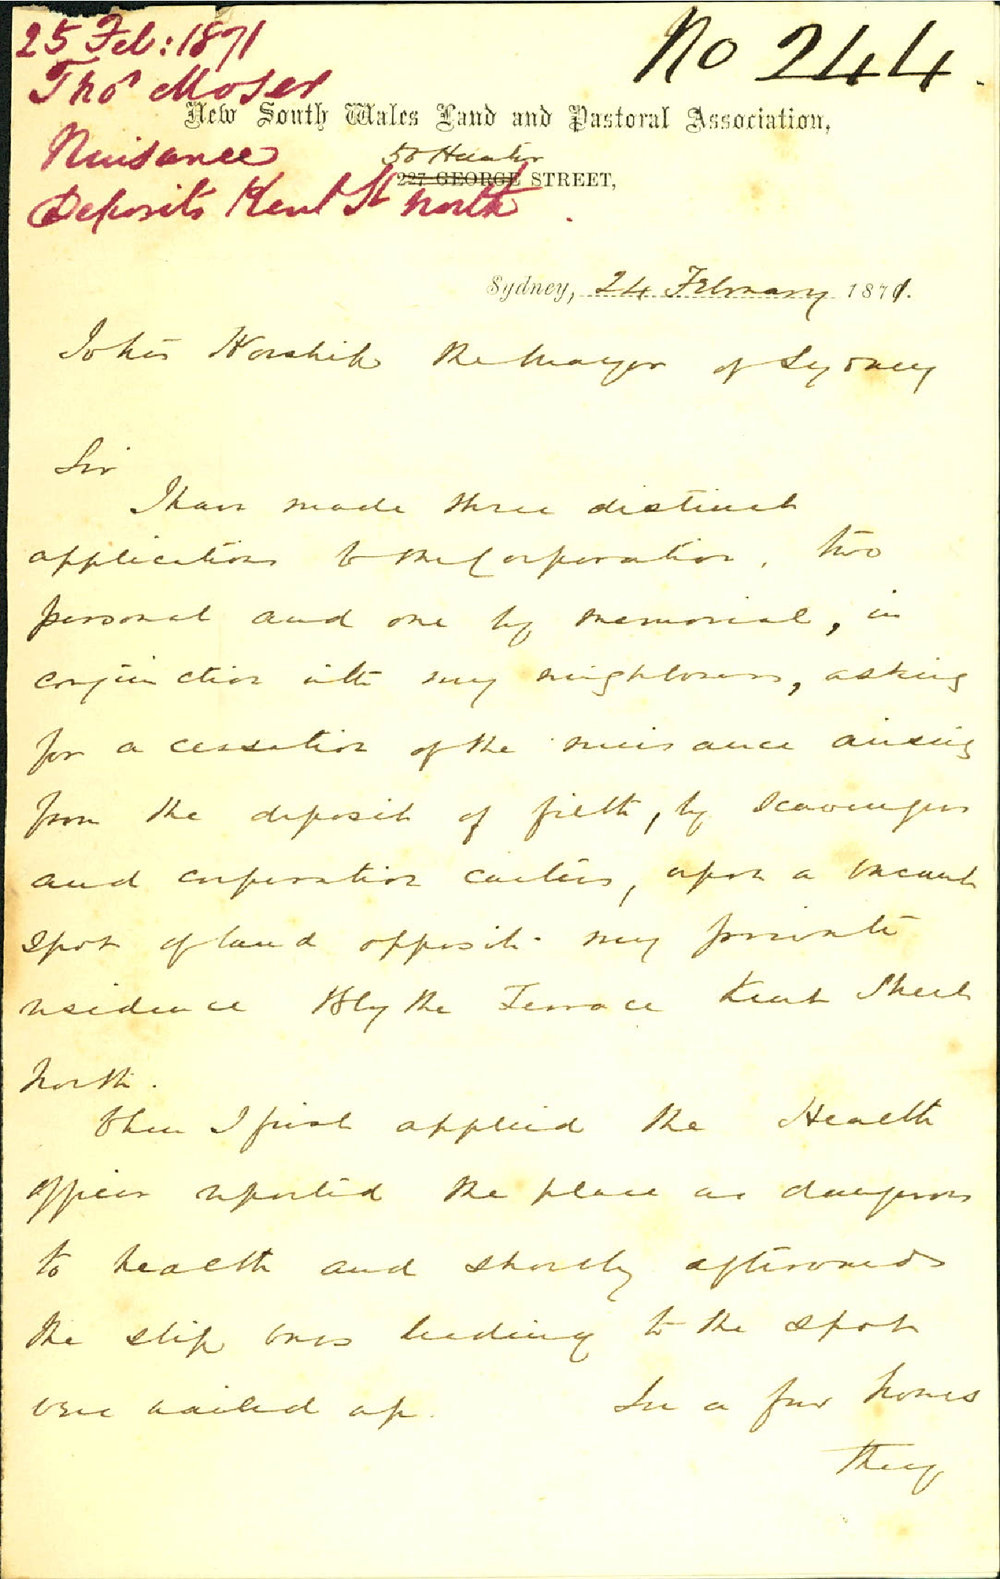 25 Feb: 1871
No 244
Thos Moser
New South Wales Land and Pastoral Association,
Nuisance
50 Hunter
227 GEORGE STREET,
Deposits Kent St North
Sydney, 24 February 1871.
To his Worship the Mayor of Sydney
Sir
I have made three distinct
applications to the Corporation, two
personal and one by memorial, in
conjunction with my neighbours, asking
for a cessation of the nuisance arising
from the deposit of filth, by scavengers
and corporation carters, upon a vacant
spot of land opposite my private
residence Blythe Terrace Kent Street
North.
When I first applied the Health
officer reported the place as dangerous
to health and shortly afterwards
the slip bars leading to the spot
were nailed up. In a few hours
they